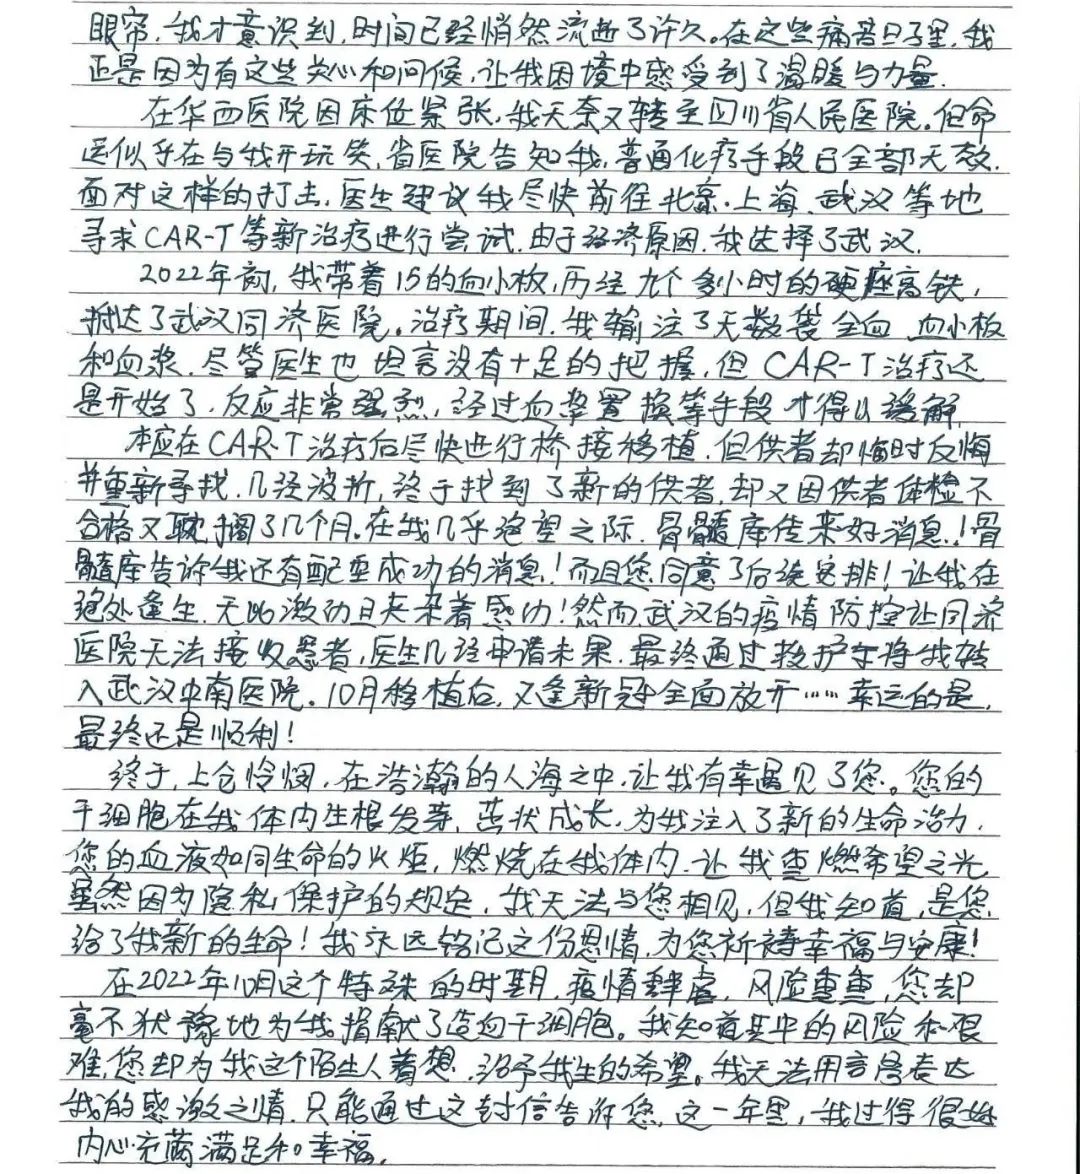 眼帘，我才意识到，时间已经悄然流逝了许久。在这些病苦日子里，我
正是因为有这些关心和问候，让我困境中感受到了温暖与力量。
在华西医院因床位紧张，我无奈又转至四川省人民医院。但命
运似乎在与我开玩笑，省医院告知我，普通化疗手段已全部无效。
面对这样的打击，医生建议我尽快前往北京、上海、武汉等地
寻求CAR-T等新治疗进行尝试。由于经济原因，我选择了武汉。
2022年初，我带着15的血小板，历经九个多小时的硬座高铁，
抵达了武汉同济医院。治疗期间，我输注了无数袋全血、血小板
和血浆。尽管医生也坦言没有十足的把握，但CAR-T治疗还
是开始了，反应非常强烈，经过血浆置换等手段才得以缓解。
本应在CAR-T治疗后尽快进行桥接移植，但供者却临时反悔
并重新寻找，几经波折，终于找到了新的供者，却又因供者体检不
合格又耽搁了几个月。在我几乎绝望之际，骨髓库传来好消息！骨
髓库告诉我还有配型成功的消息！而且您同意了后续安排！让我在
绝处逢生，无比激动且夹杂着感动！然而武汉的疫情防控让同济
医院无法接收患者，医生几经申请未果，最终通过救护车将我转
入武汉中南医院。10月移植后，又逢新冠全面放开……幸运的是，
最终还是顺利！
终于，上仓怜悯，在浩瀚的人海之中，让我有幸遇见了您。您的
干细胞在我体内生根发芽，茁状成长，为我注入了新的生命活力。
您的血液如同生命的火炬，燃烧在我体内，让我重燃希望之光
虽然因为隐私保护的规定，我无法与您相见，但我知道，是您
给了我新的生命！我永远铭记这份恩情，为您祈祷幸福与安康！
在2022年10月这个特殊的时期，疫情肆虐，风险重重，您却
毫不犹豫地为我捐献了造血干细胞。我知道其中的风险和艰
难，您却为我这个陌生人着想，给予我生的希望。我无法用言语表达
我的感激之情，只能通过这封信告诉您，这一年里，我过得很好
内心充满满足和幸福。